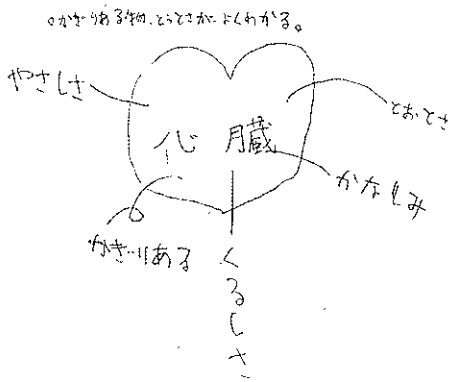 ○かぎりある物、とうとさがよくわかる。
やさしさ
とおとさ
心臓
かなしみ
かぎりある
くるしさ